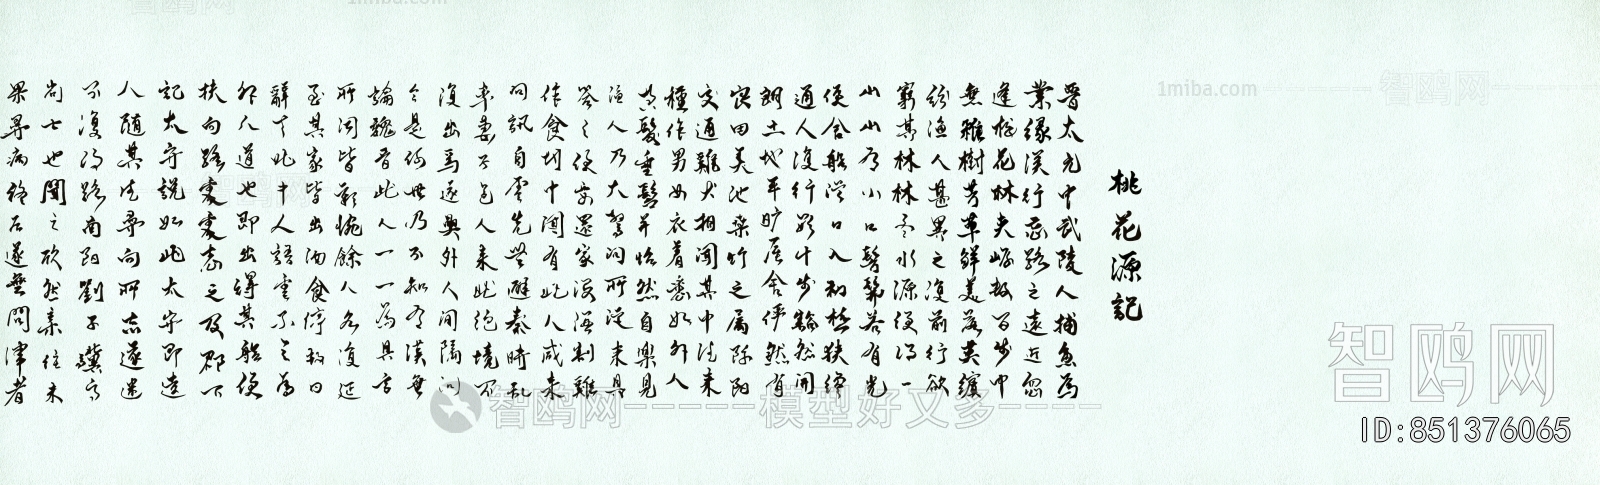 桃花源記
晋太元中武陵人捕魚為
業緣溪行忘路之遠近忽
逢桃花林夾岸數百步中
無雜樹芳草鮮美落英繽
紛漁人甚異之復前行欲
窮其林林盡水源便得一
山山有小口髣髴若有光
便舍船從口入初極狹纔
通人復行數十步豁然開
朗土地平曠屋舍儼然有
良田美池桑竹之屬阡陌
交通雞犬相聞其中往來
種作男女衣着悉如外人
黄髮垂髫并怡然自樂見
漁人乃大驚問所從來具
答之便要還家設酒制雞
作食村中聞有此人咸來
問訊自雲先世避秦時乱
率妻子邑人來此絕境不
復出焉遂與外人間隔問
今是何世乃不知有漢無
論魏晋此人一一為具言
所聞皆歎惋餘人各復延
至其家皆出酒食停數日
辭去此中人語雲不足為
外人道也即出得其船便
扶向路處處志之及郡下
記太守說如此太守即遣
人随其往尋向所志遂迷
不復得路南陽劉子驥高
尚士也聞之欣然親往未
果尋病終后遂無問津者
智鸥网
1miba.com
1miba.com
智鸥网
智鸥网-----模型好又多----
智鸥网
ID:851376065